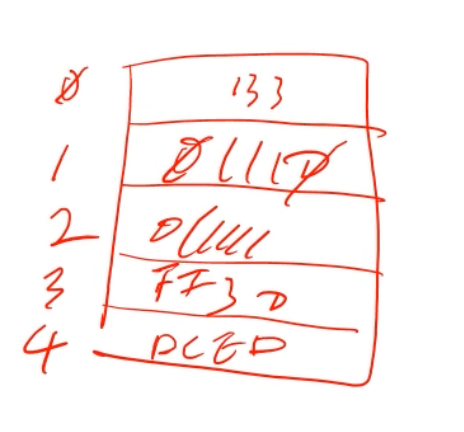 Ø 133
1 Ø111Ø
2 01111
3 FF30
4 DCED